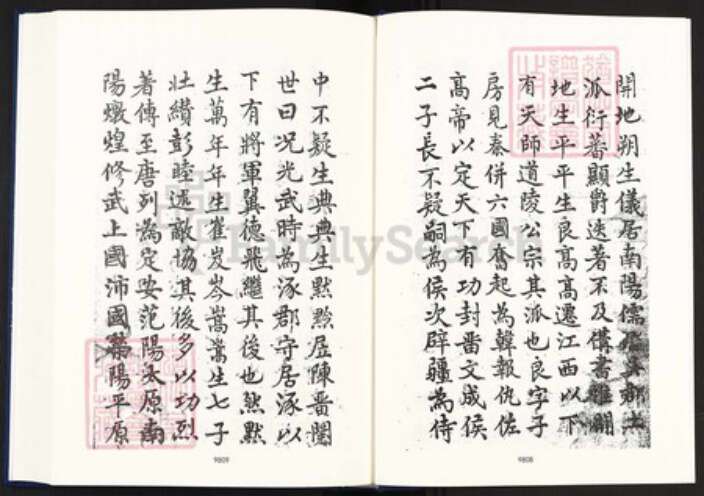 開地朔生儀居南陽儒
派衍蕃顯爵迭著不及備書雖闢
地生平平生良高高遷江西以下
有天師道陵公宗其派也良字子
房見秦併六國奮起為韓報仇佐
高帝以定天下有功封畱文成侯
二子長不疑嗣為侯次辟疆為侍
9808
中不疑生典典生默默居陳畱闌
世曰况光武時為涿郡守居涿以
下有將軍翼德飛繼其後也然默
生萬年年生崔岌岑嵩嵩生七子
壯纘彭睦述敵協其後多以功烈
著傳至唐列為定安范陽太原南
陽燉煌修武上國沛國滎陽平原
9809
FamilySearch